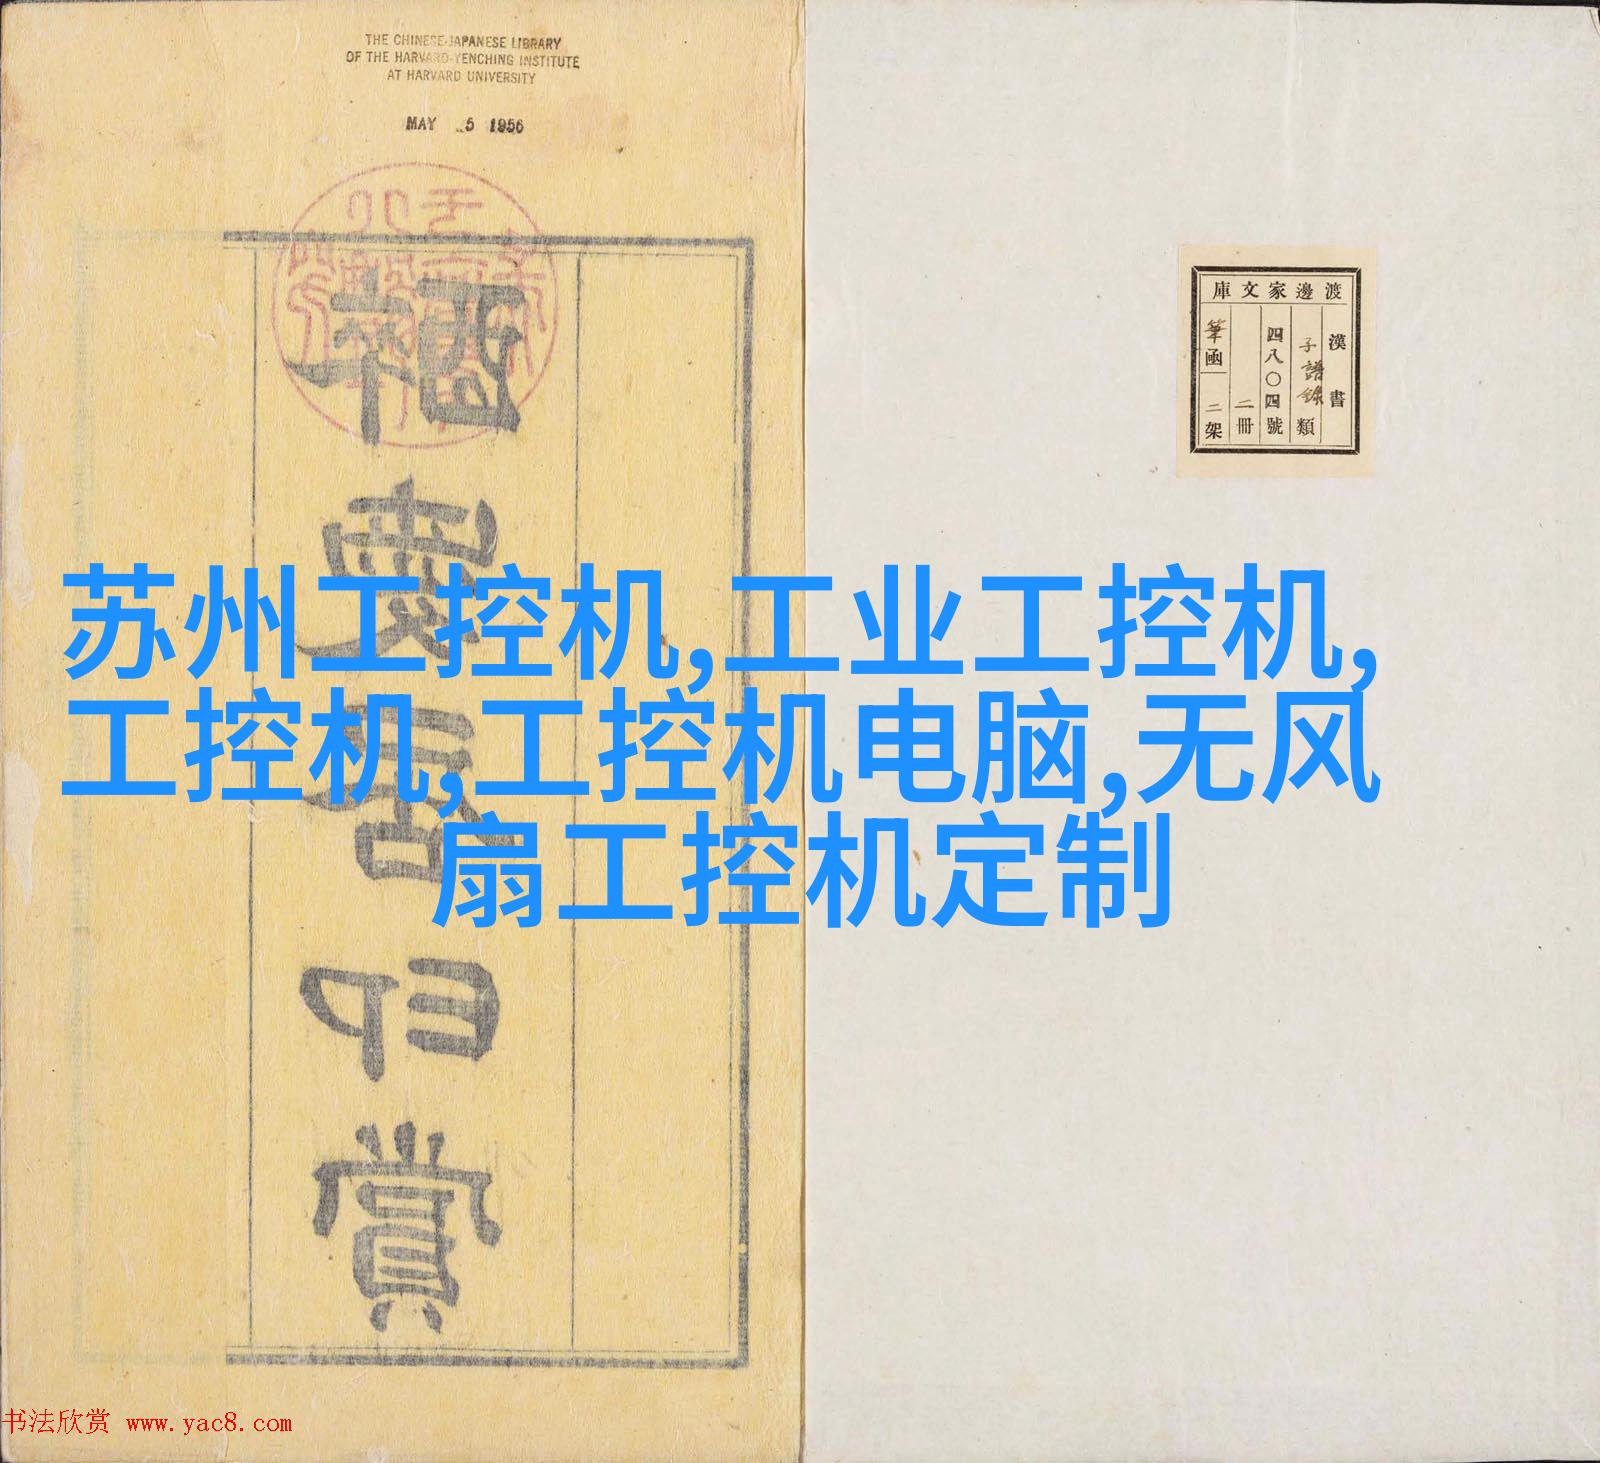 THE CHINESE-JAPANESE LIBRARY
OF THE HARVARD-YENCHING INSTITUTE
AT HARVARD UNIVERSITY
MAY 5 1956
渡邊家文庫
漢書
子譜錄類
四八〇四號
二冊
筆函二架
苏州工控机,工业工控机,
工控机,工控机电脑,无风
扇工控机定制
书法欣赏 www.yac8.com